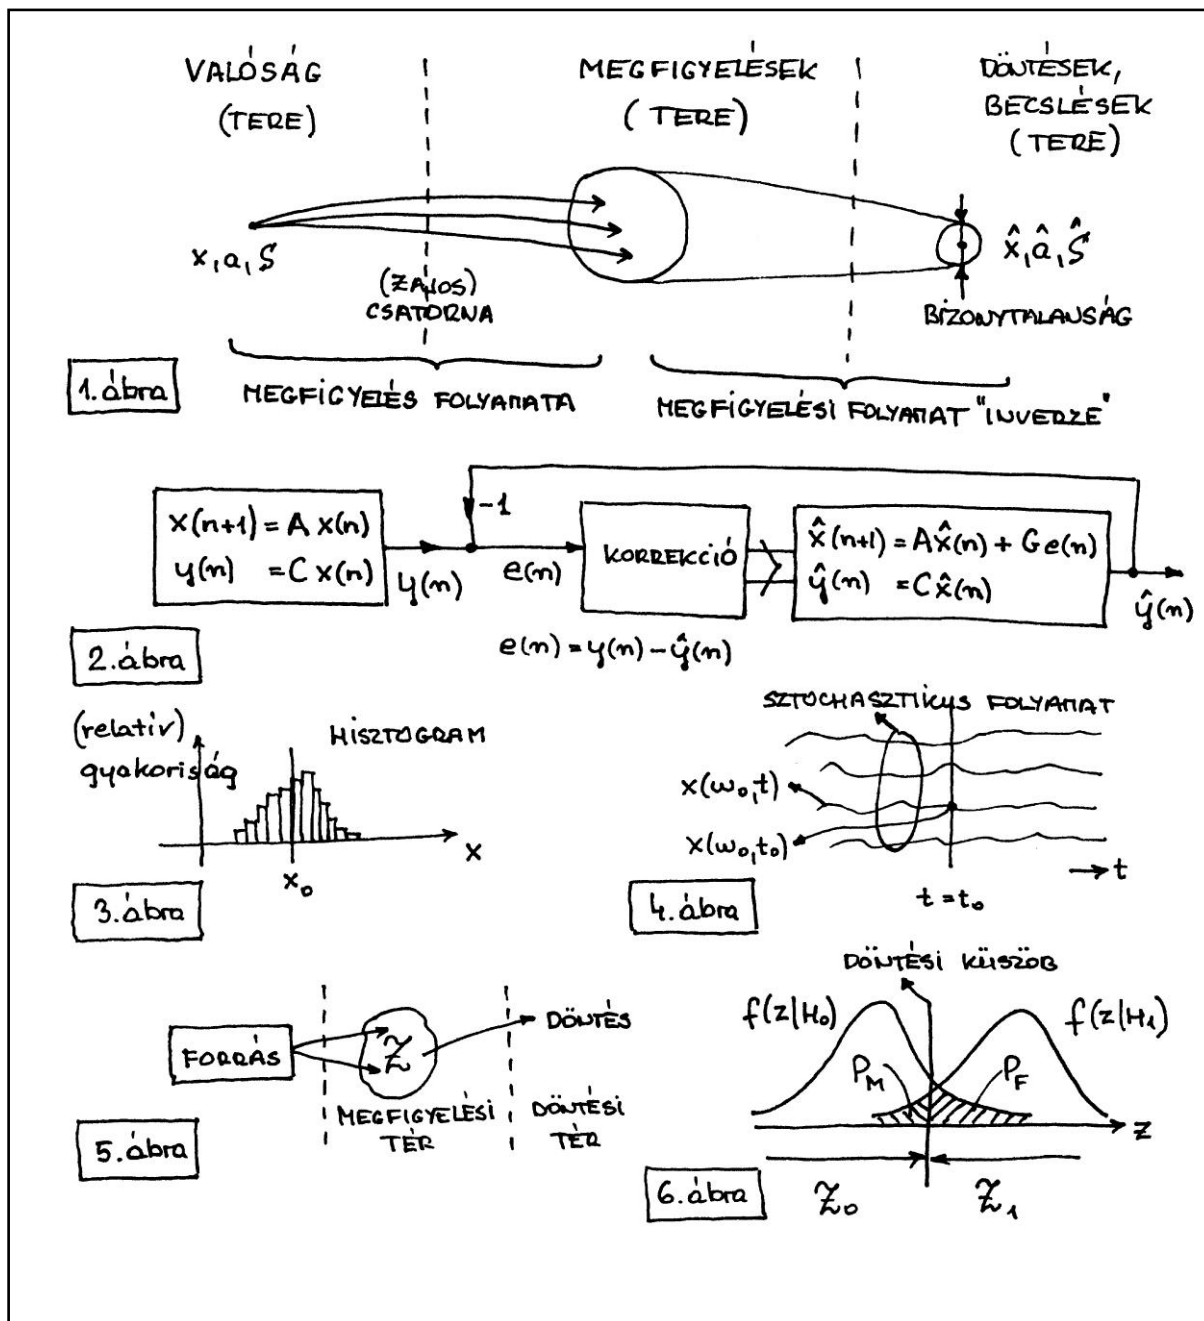 VALÓSÁG
(TERE)
MEGFIGYELÉSEK
(TERE)
DÖNTÉSEK,
BECSLÉSEK
(TERE)
x, a, S
(ZAJOS)
CSATORNA
x̂, â, Ŝ
BIZONYTALANSÁG
1. ábra
MEGFIGYELÉS FOLYAMATA
MEGFIGYELÉSI FOLYAMAT "INVERZE"
x(n+1) = A x(n)
y(n) = C x(n)
y(n)
-1
e(n)
KORREKCIÓ
x̂(n+1) = Ax̂(n) + Ge(n)
ŷ(n) = Cx̂(n)
ŷ(n)
e(n) = y(n) - ŷ(n)
2. ábra
(relatív)
gyakoriság
HISZTOGRAM
x
x₀
3. ábra
SZTOCHASZTIKUS FOLYAMAT
x(ω₀,t)
x(ω₀,t₀)
t
t = t₀
4. ábra
FORRÁS
Z
DÖNTÉS
MEGFIGYELÉSI
TÉR
DÖNTÉSI
TÉR
5. ábra
DÖNTÉSI KÜSZÖB
f(z|H₀)
f(z|H₁)
P_M
P_F
z
Z₀
Z₁
6. ábra